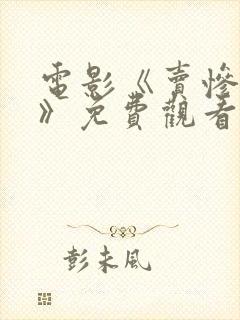 電影《賣慘
》免費觀看
彭未風